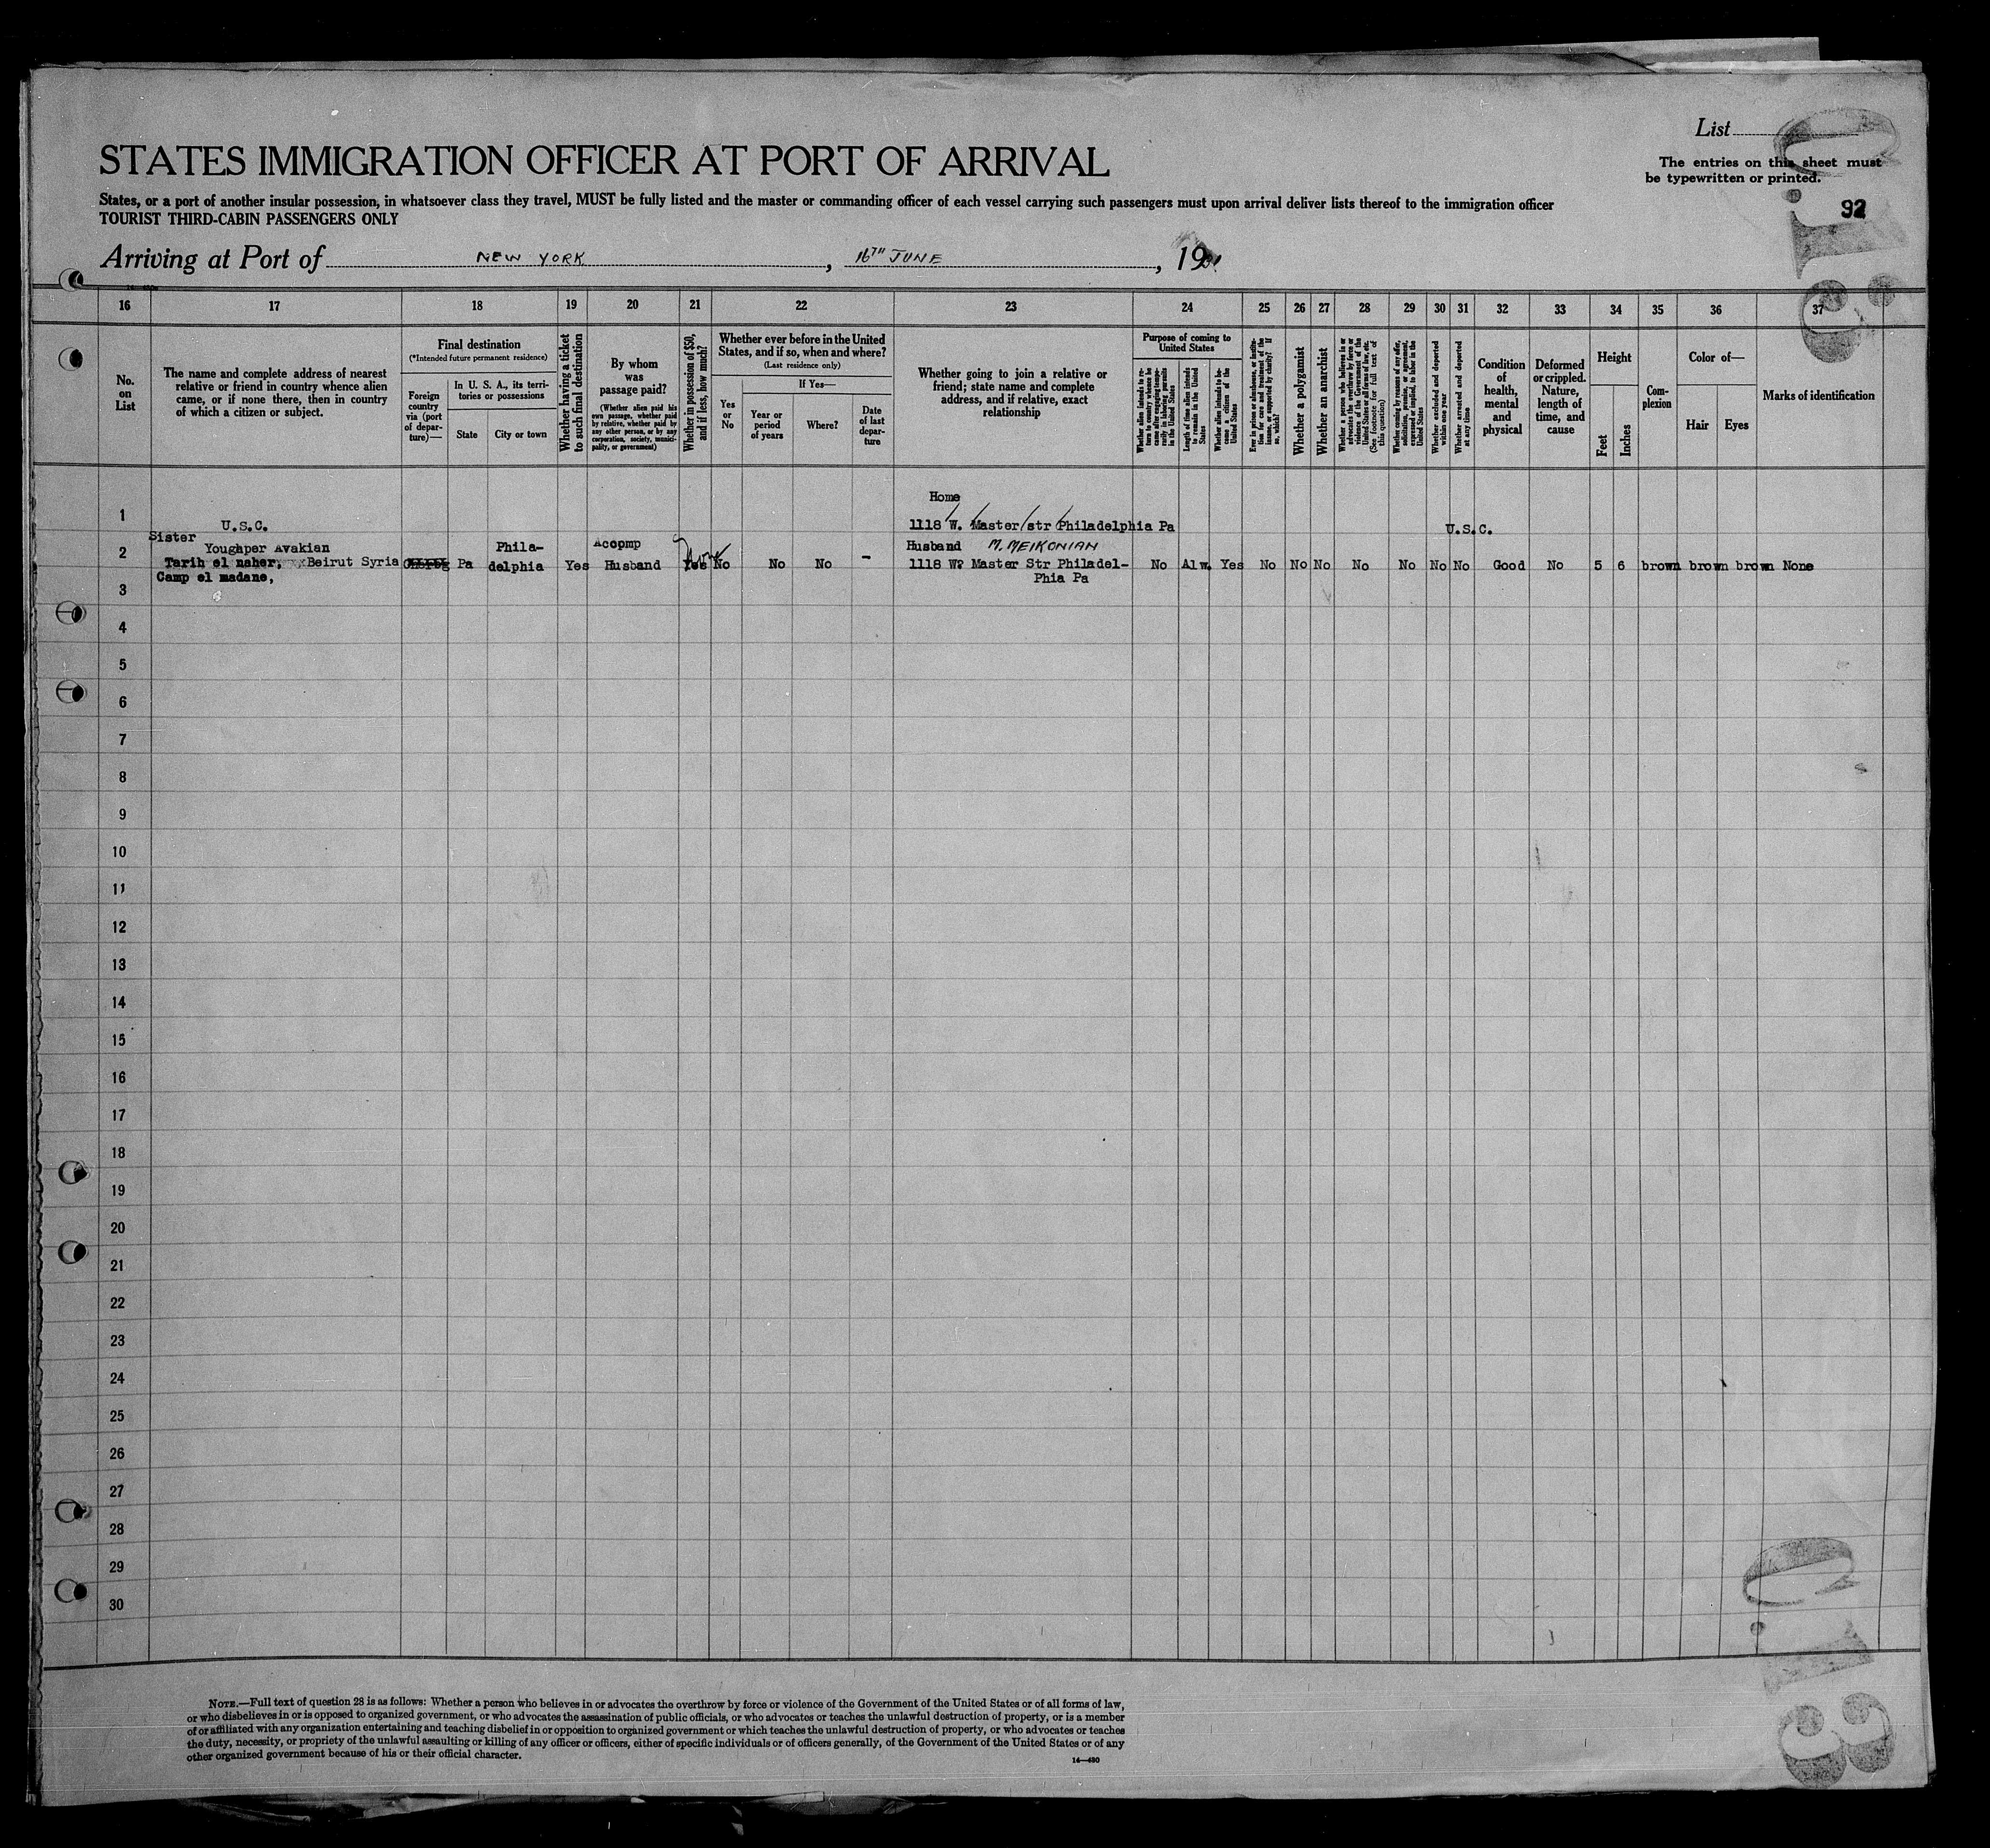 List
STATES IMMIGRATION OFFICER AT PORT OF ARRIVAL
The entries on this sheet must
be typewritten or printed.
States, or a port of another insular possession, in whatsoever class they travel, MUST be fully listed and the master or commanding officer of each vessel carrying such passengers must upon arrival deliver lists thereof to the immigration officer
TOURIST THIRD-CABIN PASSENGERS ONLY
92
Arriving at Port of NEW YORK, 16TH JUNE, 19
16 17 18 19 20 21 22 23 24 25 26 27 28 29 30 31 32 33 34 35 36 37
No.
on
List
The name and complete address of nearest
relative or friend in country whence alien
came, or if none there, then in country
of which a citizen or subject.
Final destination
(*Intended future permanent residence)
Foreign
country
via (port
of depar-
ture)—
In U. S. A., its terri-
tories or possessions
State
City or town
Whether having a ticket
to such final destination
By whom
was
passage paid?
(Whether alien paid his
own passage, whether paid
by relative, whether paid by
any other person, or by any
corporation, society, munici-
pality, or government)
Whether in possession of $50,
and if less, how much?
Whether ever before in the United
States, and if so, when and where?
(Last residence only)
Yes
or
No
If Yes—
Year or
period
of years
Where?
Date
of last
depar-
ture
Whether going to join a relative or
friend; state name and complete
address, and if relative, exact
relationship
Purpose of coming to
United States
Whether alien intends to re-
turn to country whence he
came after engaging tempo-
rarily in laboring pursuits
in the United States
Length of time alien intends
to remain in the United
States
Whether alien intends to be-
come a citizen of the
United States
Ever in prison or almshouse, or institu-
tion for care and treatment of the
insane, or supported by charity? If
so, which?
Whether a polygamist
Whether an anarchist
Whether a person who believes in or
advocates the overthrow by force or
violence of the Government of the
United States or all forms of law, etc.
(See footnote for full text of
this question)
Whether coming by reason of any offer,
solicitation, promise, or agreement,
expressed or implied, to labor in the
United States
Whether excluded and deported
within one year
Whether arrested and deported
at any time
Condition
of
health,
mental
and
physical
Deformed
or crippled.
Nature,
length of
time, and
cause
Height
Feet
Inches
Com-
plexion
Color of—
Hair
Eyes
Marks of identification
Home
1 U.S.C. 1118 W. Master str Philadelphia Pa U.S.C.
Sister
2 Youghper Avakian Phila- Accpmp Husband M. MEIKONIAN
Tarih el naher, Beirut Syria Pa delphia Yes Husband Yes None No No No - 1118 W. Master Str Philadel- No Alw. Yes No No No No No No No Good No 5 6 brown brown brown None
Camp el madane, Phia Pa
3
4
5
6
7
8
9
10
11
12
13
14
15
16
17
18
19
20
21
22
23
24
25
26
27
28
29
30
NOTE.—Full text of question 28 is as follows: Whether a person who believes in or advocates the overthrow by force or violence of the Government of the United States or of all forms of law,
or who disbelieves in or is opposed to organized government, or who advocates the assassination of public officials, or who advocates or teaches the unlawful destruction of property, or is a member
of or affiliated with any organization entertaining and teaching disbelief in or opposition to organized government or which teaches the unlawful destruction of property, or who advocates or teaches
the duty, necessity, or propriety of the unlawful assaulting or killing of any officer or officers, either of specific individuals or of officers generally, of the Government of the United States or of any
other organized government because of his or their official character.
14—430